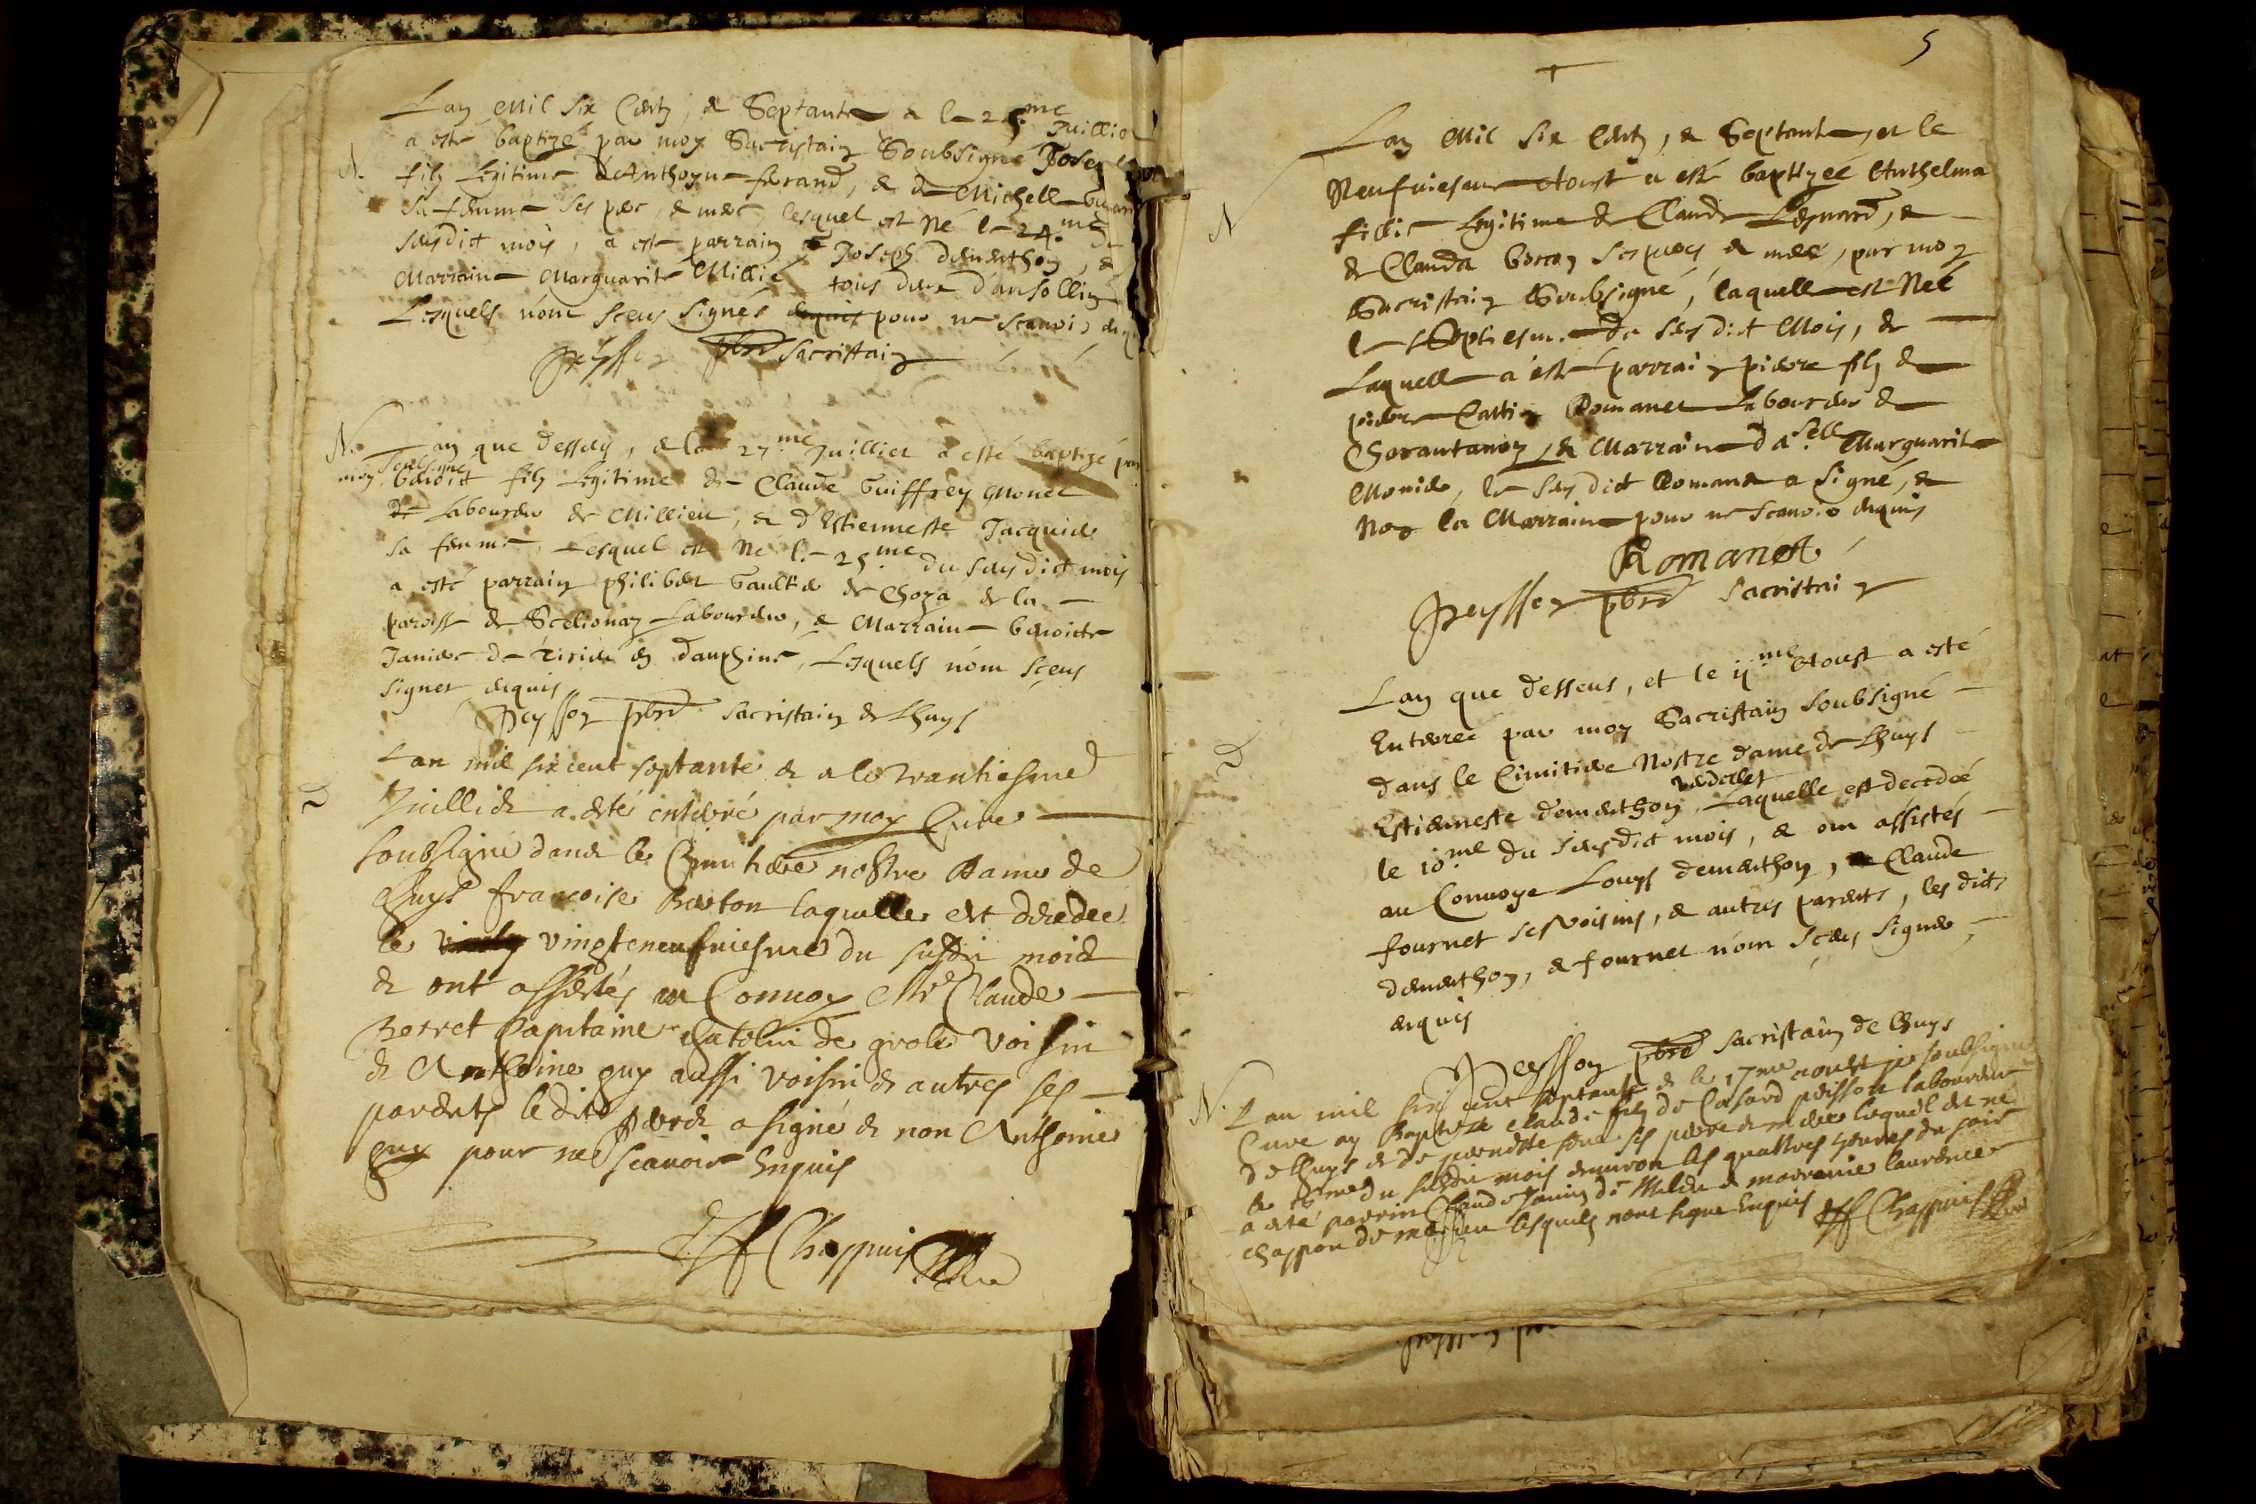 Lan Mil six Cents, & Septante & le 25.me Juillie
a este baptizé par moy Sacristain Soubsigné Josep
N.
filz legitime d'Anthoyne ferand, & de Michelle
sa femme ses pere, & mere, lesquel est Né le 24.me
susdict mois, a este parrain Joseph demerthoy, &
Marraine Marguarite Millié tous deux
Lesquels n'ont sceus signés pour ne scavoir
Peysson pbre Sacristain
N. Lan que dessus, & le 27.me Juillier a esté baptizé par
moy soubsigné benoict filz legitime de Claude Guiffrey Monet
Labourdeur de Millieu, & d'Estienneste Jacquier
sa femme, lesquel est Né le 25.me du susdict mois
a esté parrain philibert Gaultier de Choza de la
paroisse de Scelionaz Labourdeur, & Marraine benoicte
Janier de en dauphine, Lesquels n'ont sceus
signer enquis
Peysson pbre Sacristain de Lhuys
D
Lan mil six cent septante & le trantiesme
Juillier a esté enterré par moy Cure
soubsigné dans le Cymithiere nostre Dame de
Lhuys francoise Berton laquelle est decedee
le vingteneufuiesme du susdit mois
& ont assistés au Convoy Mr Claude
Perret Capitaine Chatelin de grole voisin
& Anthoine guy aussi voisin & autres ses
parents ledit Perret a signé & non Anthoine
guy pour ne scavoir Enquis
Chappuis Cure
5
N
Lan Mil six Cents, & Septante, et le
Neufuiesme Aoust a esté baptizeé Anthelma
fillie legitime de Claude Leynard, &
de Clauda borron ses peres & mere, par moy
Sacristain Soubsigné, laquelle est Neé
le Septiesme du susdict Mois, de
Laquelle a esté parrain pierre filz de
pierre Cattin Romanet Labourdeur de
Charantanoy, & Marraine da.elle Marguarite
Monier, le susdict Romanet a signé, &
Non la Marraine pour ne scavoir enquis
Romanet
Peysson pbre Sacristain
D
Lan que dessus, et le 11.me Aoust a esté
Enterreé par moy Sacristain soubsigné
dans le Cimitiere Nostre dame de Lhuys
Estienneste demerthoy Laquelle est decedeé
le 10.me du susdict mois, & ont assistés
au Convoye Louys demerthoy, Claude
fournet ses voisins, & autres parents, les dits
demerthoy, & fournet n'ont sceus signer,
enquis
Peysson pbre Sacristain de Lhuys
N. Lan mil six cent septante & le 17me aoust je soubsigné
Cure ay Baptizé Claude filz de Casard poisson labourdeur
de Lhuys & de pernette ses pere & mere lequel est né
le 16me du susdit mois environ les quattres heures du soir
a esté parrin Claude Janin de & marreine laurence
chappon de lesquels nont signe Enquis Chappuis Cure